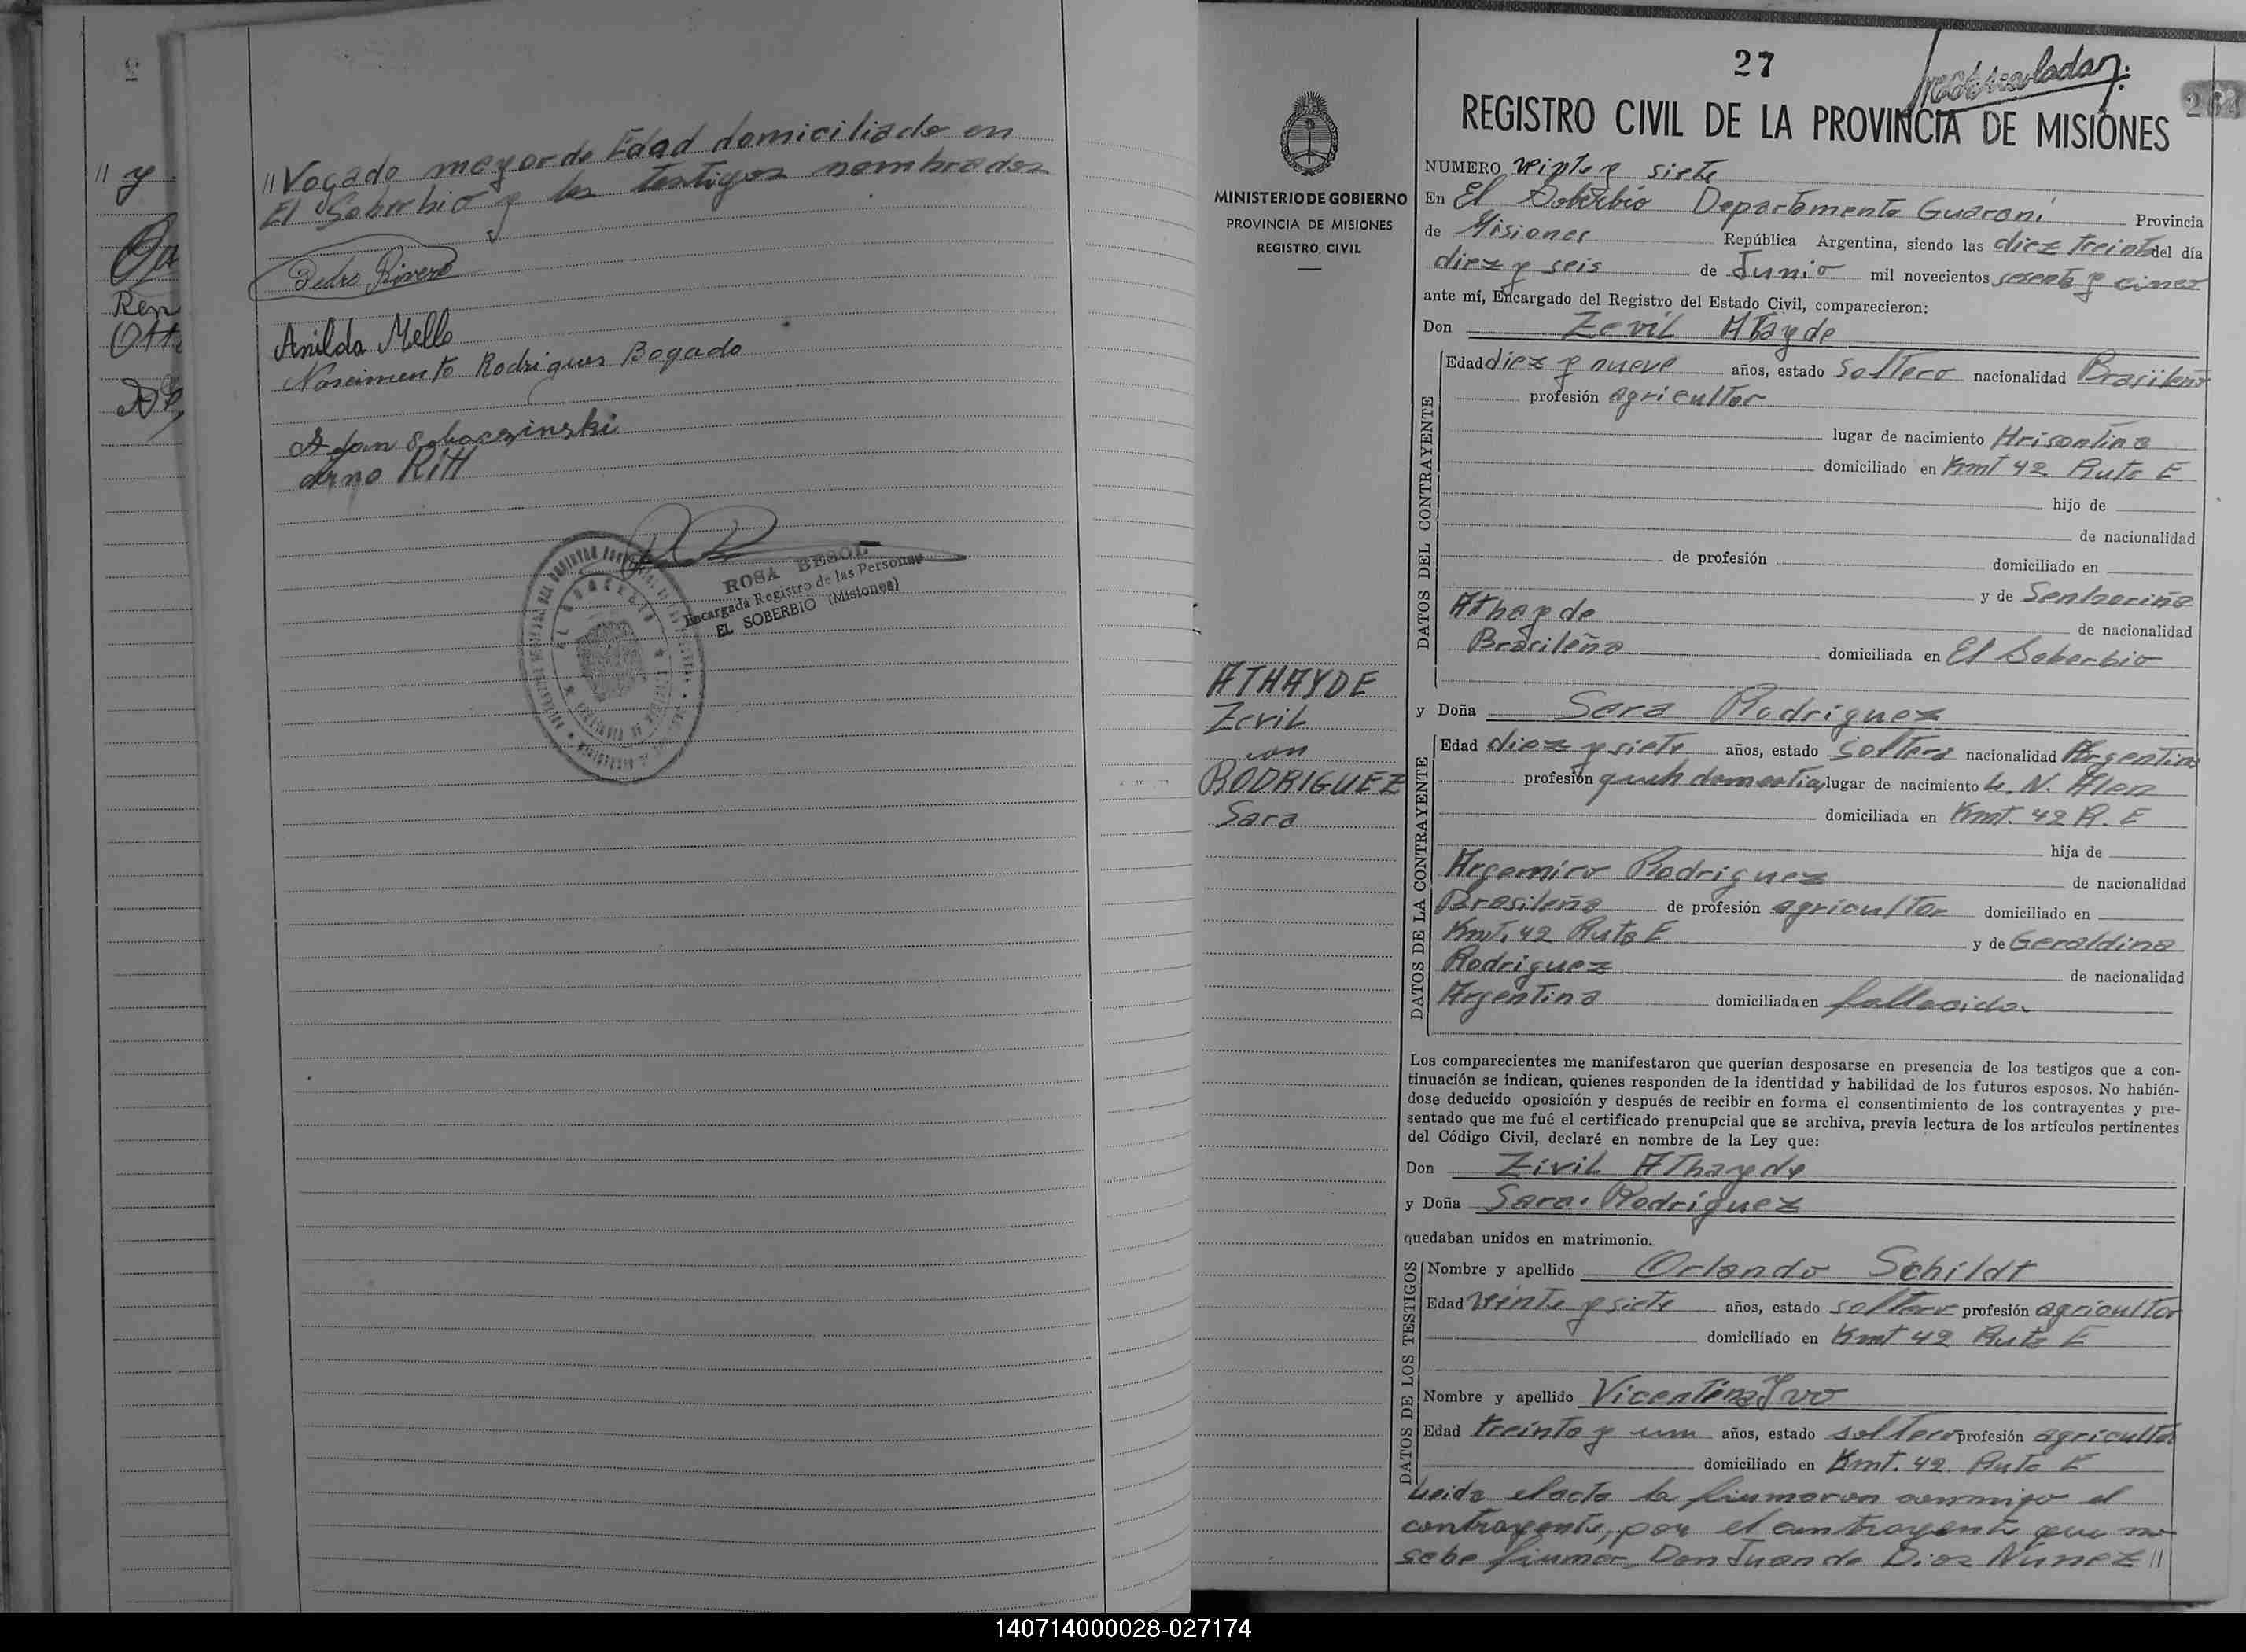 // y
Ren
Ott
// Vogado mayor de Edad domiciliado en
El Soberbio y los testigos nombrados
Pedro Rivero
Anilda Mello
Nascimento Rodrigues Bogado
Adan Sobaczinski
Arno Ritt
ROSA BESOL
Encargada Registro de las Personas
EL SOBERBIO (Misiones)
27
264
MINISTERIO DE GOBIERNO
PROVINCIA DE MISIONES
REGISTRO CIVIL
ATHAYDE
Zevil
con
RODRIGUEZ
Sara
REGISTRO CIVIL DE LA PROVINCIA DE MISIONES
NUMERO veinte y siete
En El Soberbio Departamento Guarani Provincia
de Misiones República Argentina, siendo las diez treinta del día
diez y seis de Junio mil novecientos sesenta y cinco
ante mí, Encargado del Registro del Estado Civil, comparecieron:
Don Zevil Athayde
DATOS DEL CONTRAYENTE
Edad diez y nueve años, estado soltero nacionalidad Brasileño
profesión agricultor
lugar de nacimiento Hrisontina
domiciliado en Kmt 42 Ruta E
hijo de
de nacionalidad
de profesión domiciliado en
y de Senhoriña
Athayde de nacionalidad
Brasileña domiciliada en El Soberbio
y Doña Sara Rodriguez
DATOS DE LA CONTRAYENTE
Edad diez y siete años, estado soltera nacionalidad Argentina
profesión queh domesticos lugar de nacimiento L. N. Alen
domiciliada en Kmt. 42 R. E
hija de
Argemiro Rodriguez de nacionalidad
Brasileña de profesión agricultor domiciliado en
Kmt. 42 Ruta E y de Geraldina
Rodriguez de nacionalidad
Argentina domiciliada en fallecida
Los comparecientes me manifestaron que querían desposarse en presencia de los testigos que a con-
tinuación se indican, quienes responden de la identidad y habilidad de los futuros esposos. No habién-
dose deducido oposición y después de recibir en forma el consentimiento de los contrayentes y pre-
sentado que me fué el certificado prenupcial que se archiva, previa lectura de los artículos pertinentes
del Código Civil, declaré en nombre de la Ley que:
Don Zivil Athayde
y Doña Sara Rodríguez
quedaban unidos en matrimonio.
DATOS DE LOS TESTIGOS
Nombre y apellido Orlando Schildt
Edad veinte y siete años, estado soltero profesión agricultor
domiciliado en Kmt 42 Ruta E
Nombre y apellido Vicentina Ivo
Edad treinta y un años, estado soltero profesión agricultor
domiciliado en Kmt. 42 Ruta E
Leida el acta la firmaron conmigo el
contrayente, por el contrayente que no
sabe firmar Don Juan de Dios Nunez //
140714000028-027174